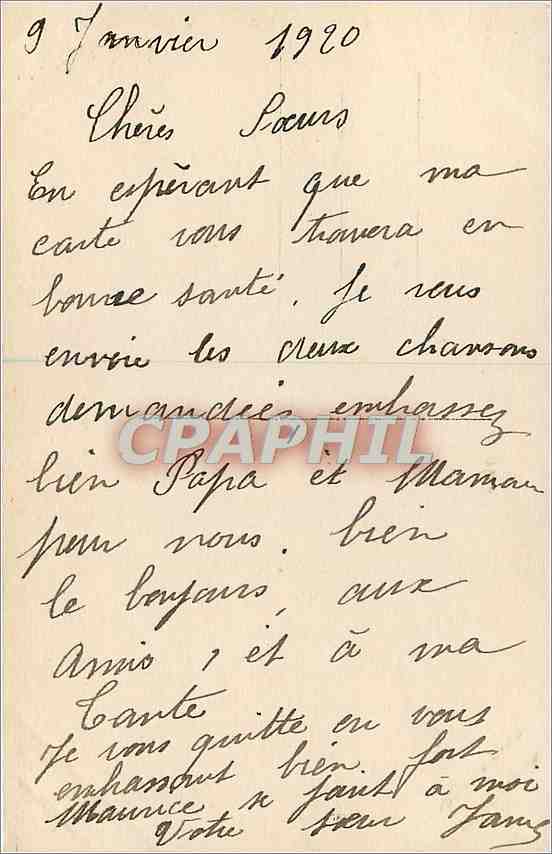 9 Janvier 1920
Chères Sœurs
En espérant que ma
carte vous trouvera en
bonne santé. Je vous
envoie les deux chansons
demandées, embassez
CPAPHIL
bien Papa et Maman
pour nous. bien
le bonjours, aux
Amis, et à ma
Tante
Je vous quitte en vous
embassant bien fort
Maurice se joint à moi
Votre sœur